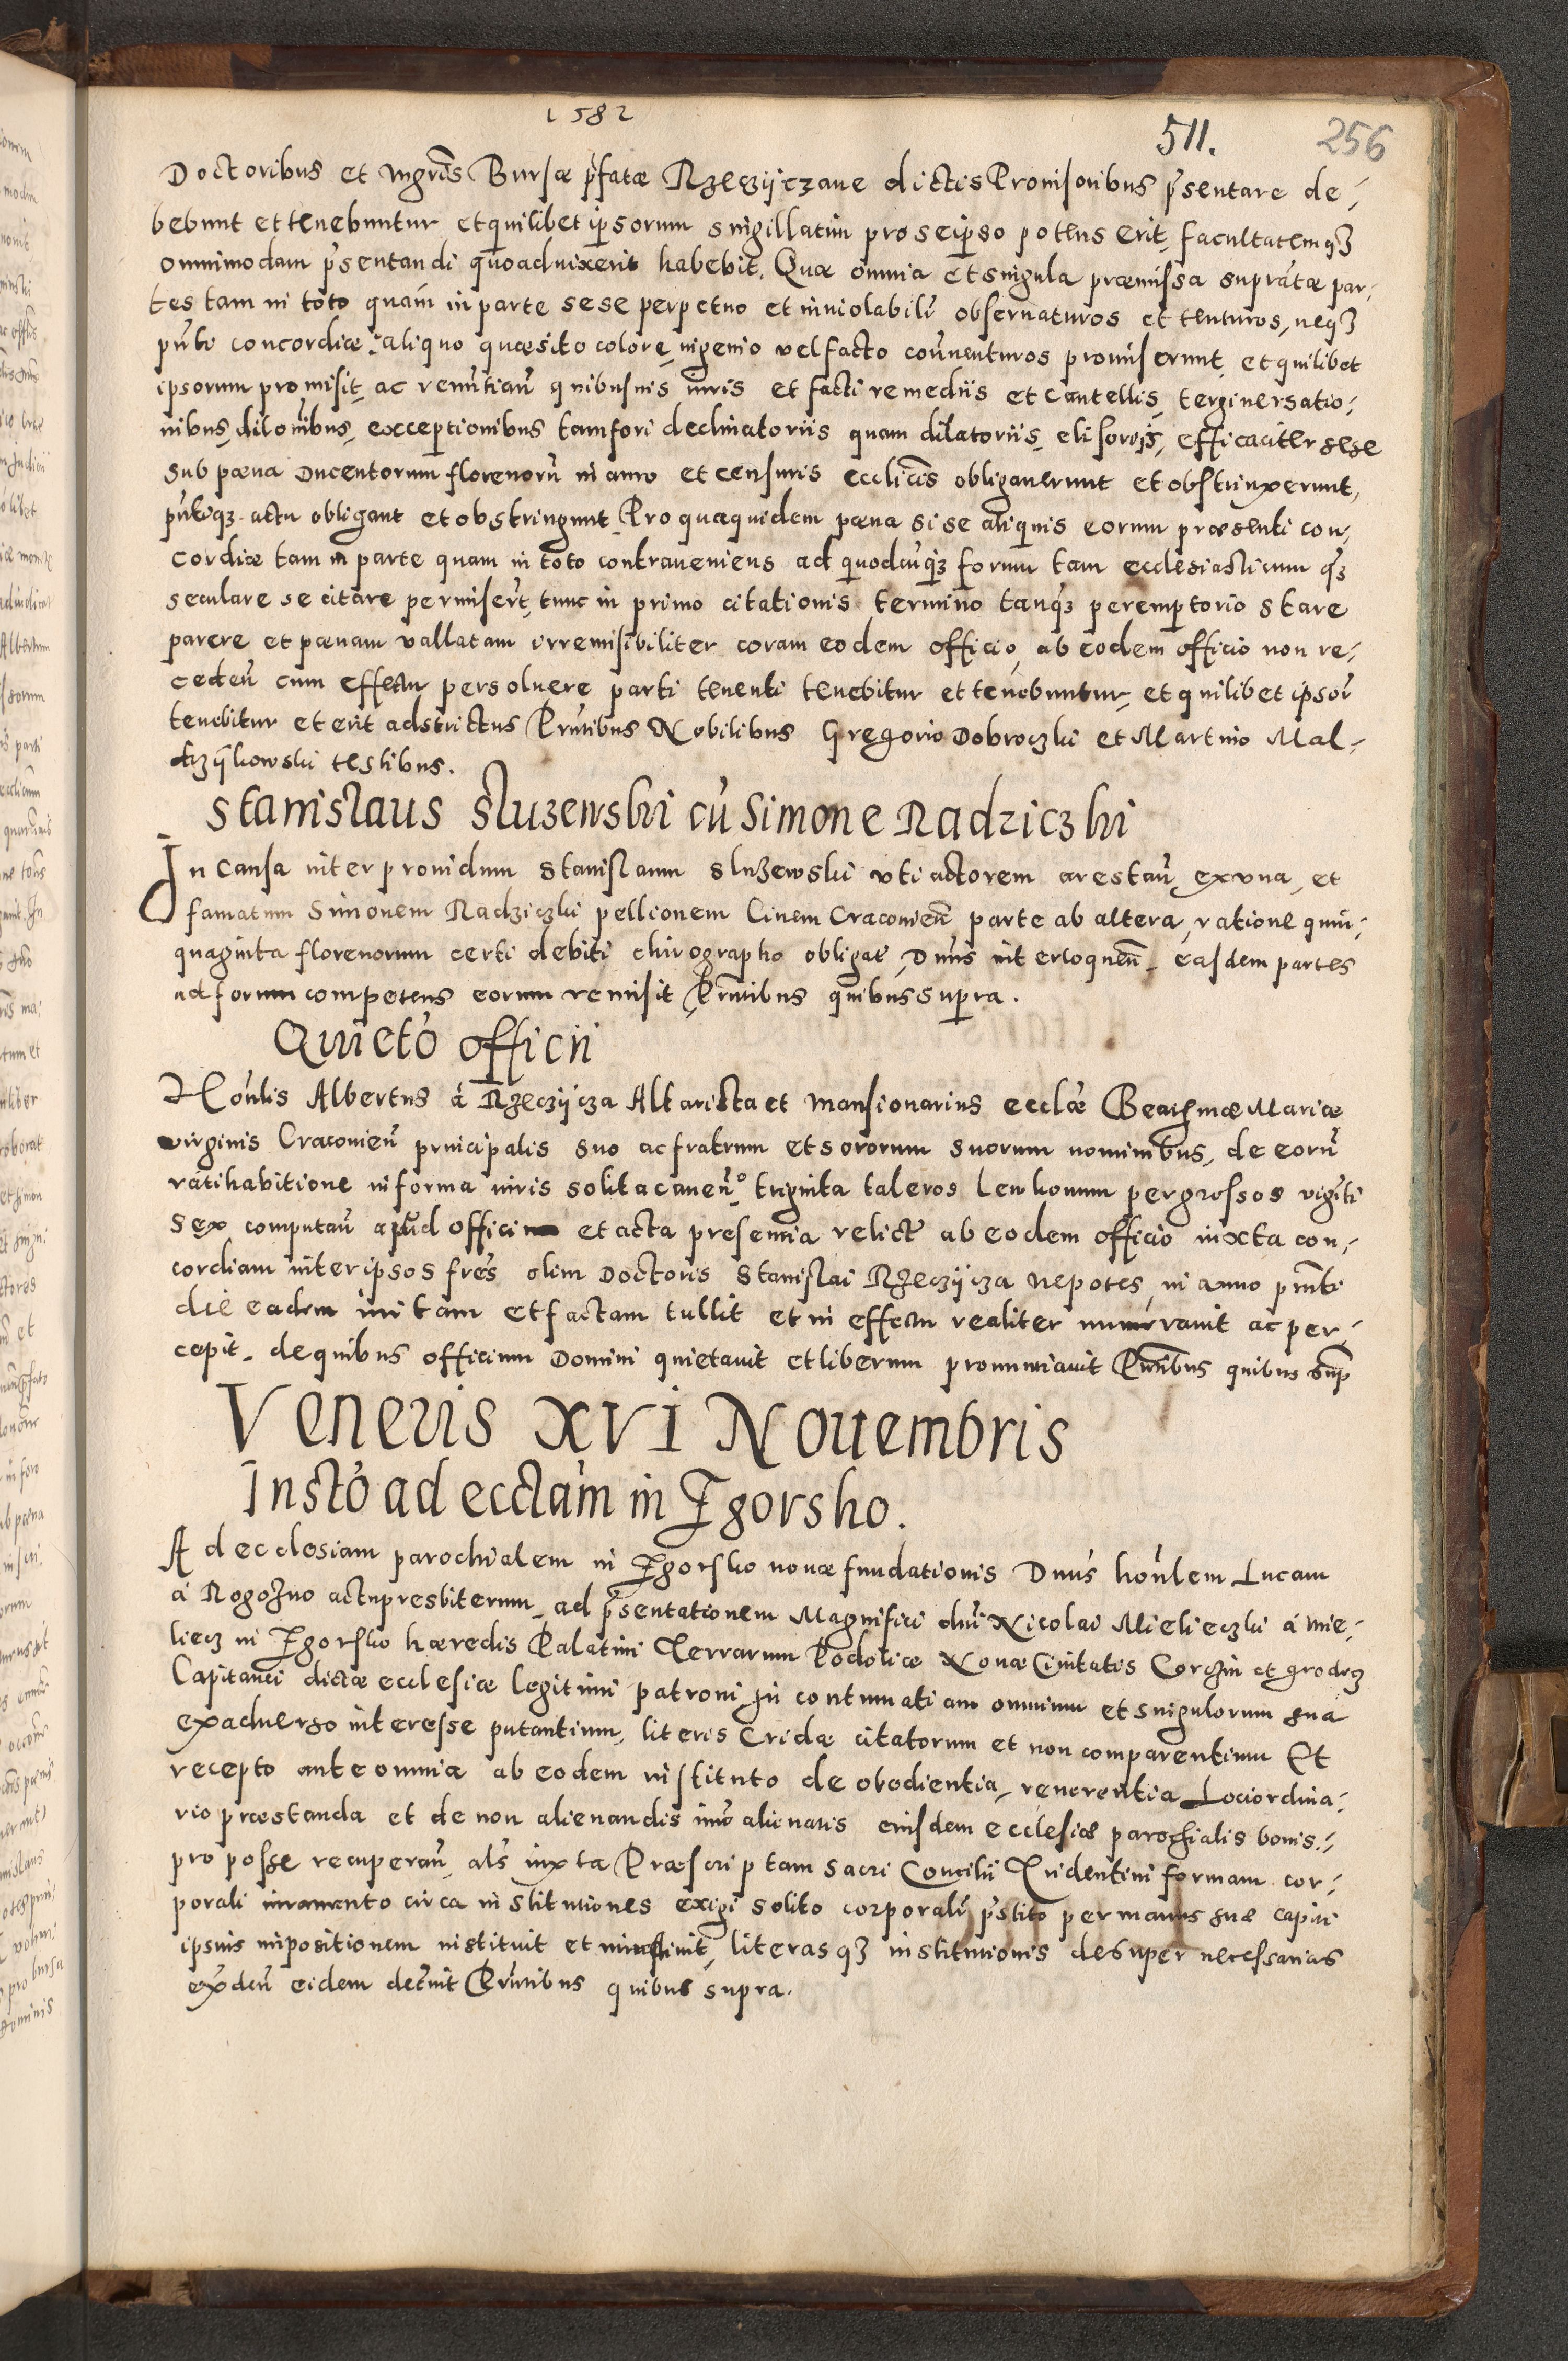 1582
511.
256
Doctoribus et mgris Bursæ p̄fatæ Rzeczijczane dictis Prouisoribus p̄sentare de-
bebunt et tenebuntur et quilibet ip̄sorum singillatim pro seip̄so potens erit, facultatemqȝ
omnimodam p̄sentandi quoad uixerit habebit. Quæ omnia et singula præmissa supratæ par-
tes tam in toto quàm in parte sese perpetuo et inuiolabilr̄ obseruaturos et tenturos, neqȝ
pn̄ti concordiæ aliquo quæsito colore, ingenio vel facto con̄uenturos promiserunt, et quilibet
ipsorum promisit, ac renūtian̄ quibusuis iuris et facti remediis et cautellis, terginersatio-
nibus, dilonibus, exceptionibus tam fori declinatoriis quam dilatoriis, elisoriis, efficaciter sese
sub pæna Ducentorum florenorū in auro et censuris eccl̄icis obligauerunt et obstrinxerunt,
pn̄tiqȝ actu obligant et obstringunt, Pro quaquidem pæna si se aliquis eorum præsenti con-
cordiæ tam in parte quam in toto contraueniens ad quodcūqȝ forum tam ecclesiasticum qȝ
seculare se citare permiserit, tunc in primo citationis termino tanqȝ peremptorio stare
parere et pænam vallatam irremisibiliter coram eodem officio, ab eodem officio non re-
ceden̄ cum effectu persoluere parti tenenti tenebitur et tenebuntur, et quilibet ipsor̄
tenebitur et erit adstrictus Pr̄ntibus Nobilibus Gregorio Dobroczki et Martino Mal-
dzijkowski testibus.
Stanislaus Sluzewski cū Simone Radziczki
In Causa inter prouidum Stanislaum Sluzewski vti actorem arestan̄ ex vna, et
famatum Simonem Radziczki pellionem Ciuem Cracouien̄ parte ab altera, ratione quin-
quaginta florenorum certi debiti chirographo obligat̄, Dn̄us interloquen̄. easdem partes
ad forum competens eorum remisit, Pr̄ntibus quibus supra.
Quietō officii
Hon̄lis Albertus à Rzeczijcza Altarista et Mansionarius eccl̄æ Beatissimæ Mariæ
virginis Cracouien̄ principalis suo ac fratrum et sororum suorum nominibus, de eorū
ratihabitione in forma iuris solita cauen̄. triginta taleros Leukonum per grossos vigīti
sex computan̄ apud offici et acta presentia relict̄ ab eodem officio iuxta con-
cordiam inter ipsos frēs olim Doctoris Stanislai Rzeczijcza nepotes, in anno pn̄ti
die eadem initam et factam tullit et in effectu realiter numerauit ac per-
cepit. de quibus officium Domini quietauit et liberum pronuntiauit Pr̄ntibus quibus sup̄
Veneris XVI Nouembris
Instō ad ecclām in Zgorsko.
Ad ecclesiam parochialem in Zgorsko nouæ fundationis Dn̄us hon̄lem Lucam
à Rogozno actu presbiterum, ad p̄sentationem Magnifici dn̄i Nicolai Mielieczki à Mie-
liecz in Zgorsko hæredis Palatini Terrarum Podoliæ Nouæ Ciuitatis Corczin et grodecz
Capitanei dictæ ecclesiæ legitimi patroni In contumatiam omnium et singulorum sua
ex aduerso interesse putantium, literis Cridæ citatorum et non comparentium Et
recepto ante omnia ab eodem instituto de obedientia, reuerentia Lociordina-
rio præstanda et de non alienandis imò alienatis eiusdem ecclesiæ parochialis bonis
pro posse recuperan̄ als̄ iuxta Præscriptam Sacri Concilii Tridentini formam cor-
porali iuramento circa institutiones exigi solito corporalr̄ p̄stito per manus suæ capiti
ipsius impositionem instituit et inuestiuit, literasqȝ institutionis desuper necessarias
exdn̄ eidem decreuit Pr̄ntibus quibus supra.